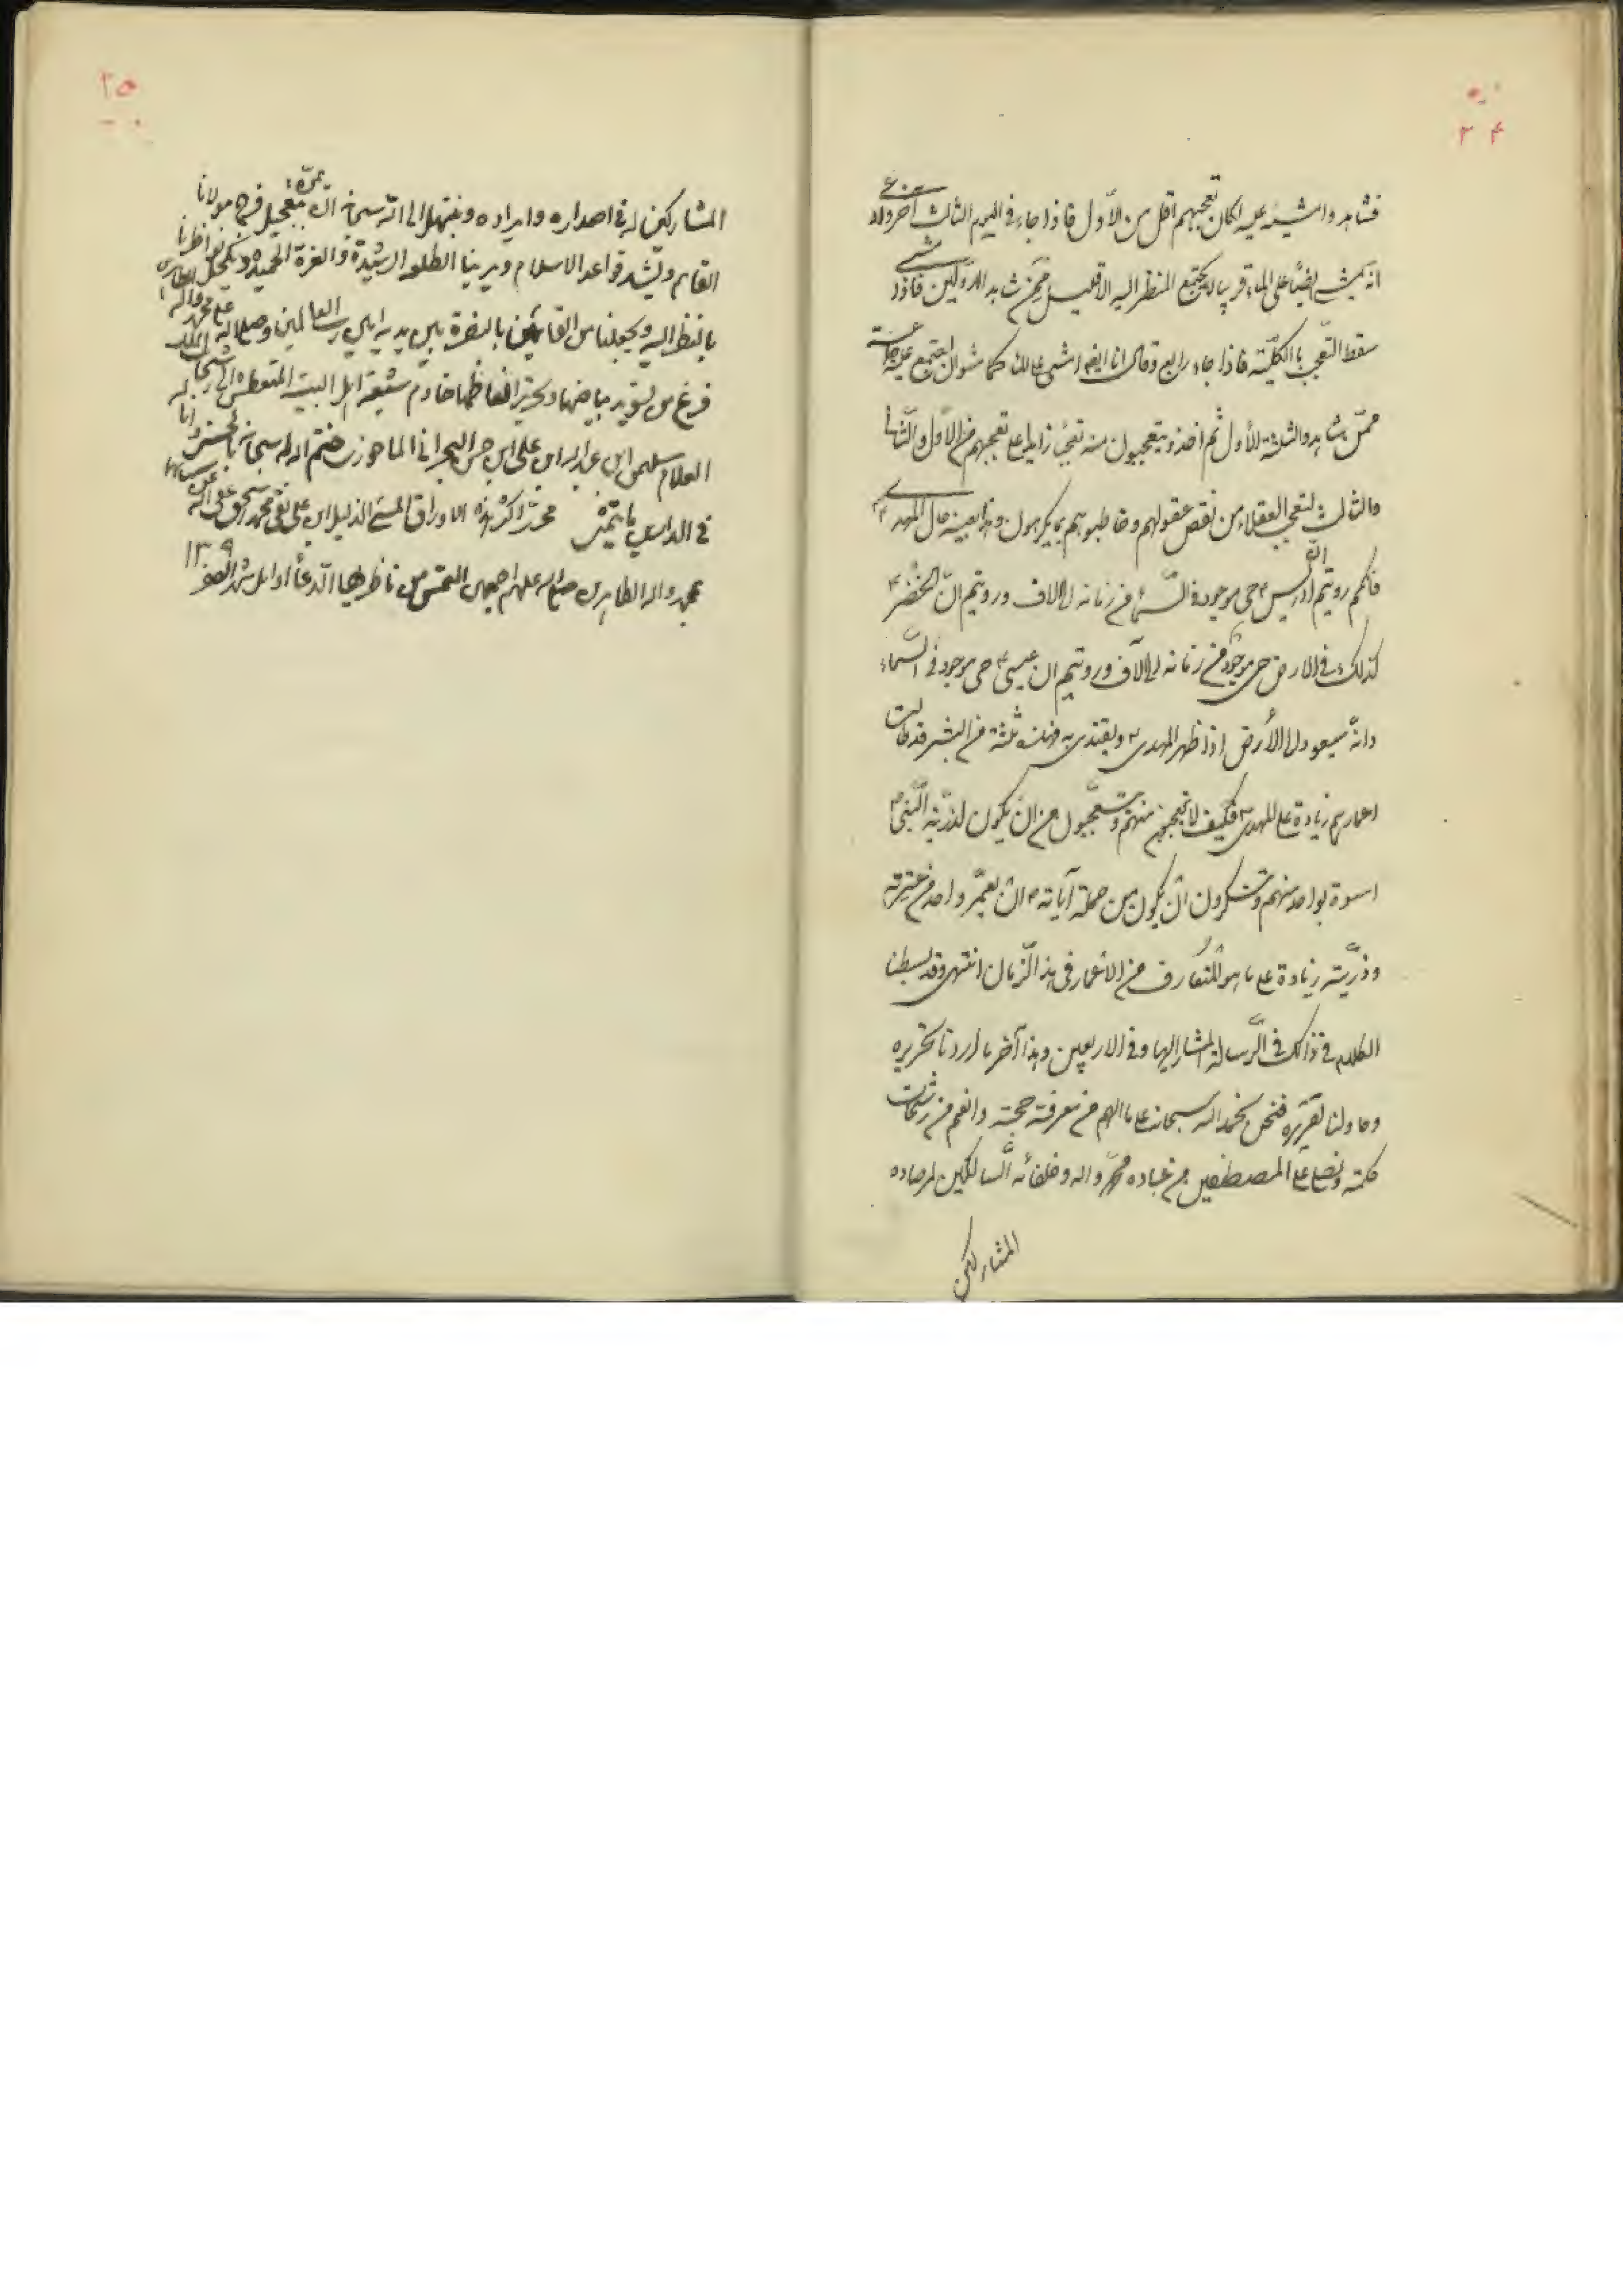 ۳۴
فشاهدوا مشيه عليه لكان تعجبهم اقل من الاول فاذا جاء في اليوم الثالث آخر وادعى
انه يمشي ايضا على الماء فربما لا يجتمع للنظر اليه الا قليل ممن شاهد الاولين فاذا مشى
سقط التعجب بالكلية فاذا جاء رابع وقال انا ايضا امشي على الماء كما مشوا فاجتمع عليه جماعة
ممن شاهد والثلثة الأول ثم اخذوا يتعجبون منه تعجبا زايدا على تعجبهم من الاول والثاني
والثالث لتعجب العقلاء من نقص عقولهم وخاطبوهم بما يكرهون وهذا بعينه حال المهدي ع
فانكم رويتم ان ادريس ع حي موجود في السماء من زمانه الى الان ورويتم ان الخضر ع
كذلك في الارض حي موجود من زمانه الى الآن ورويتم ان عيسى ع حي موجود في السماء
وانه سيعود الى الأرض اذا ظهر المهدي ع ويقتدي به فهذه ثلثة من البشر قد طالت
اعمارهم زيادة على المهدي ع فكيف لا تتعجبون منهم وتتعجبون من ان يكون لذرية النبي ص
اسوة بواحد منهم وتنكرون ان يكون من جملة آياته ص ان يعمر واحد من عترته
وذريته زيادة على ما هو المتعارف من الاعمار في هذا الزمان انتهى وقد بسطنا
الكلام في ذالك في الرسالة المشار اليها وفي الاربعين وهذا آخر ما اردنا تحريره
وحاولنا تقريره فنحن نحمد الله سبحانه على ما الهم من معرفة حجته وانعم من رشحات
حكمته ونصلي على المصطفين من عباده محمد واله وخلفائه السالكين لمرصاده
المشاركين
۳۵
المشاركين له في اصداره وايراده ونبتهل الى الله سبحانه ان يمن بتعجيل فرج مولانا
القايم ويشد قواعد الاسلام ويرينا الطلعة الرشيدة والغرة الحميدة ويكحل نواظرنا
بالنظر اليه ويجعلنا من القائمين بالنصرة بين يديه امين رب العالمين وصلى الله على محمد واله الطاهرين
فرغ من تسويد بياضها وتحرير الفاظها خادم شيعة اهل البيت المتعطش الى رشحات
العلام سليمن ابن عبد الله ابن علي ابن حسن البحراني الماحوزي ختم الله له سبحانه بالحسنى
في الدارين محرر اكثر هذه الاوراق المسئ الذليل ابن علي نقي محمد
بمحمد واله الطاهرين صلى الله عليهم اجمعين التمس من ناظريها الدعا اوايل شهر الصفر
۱۳۰۹